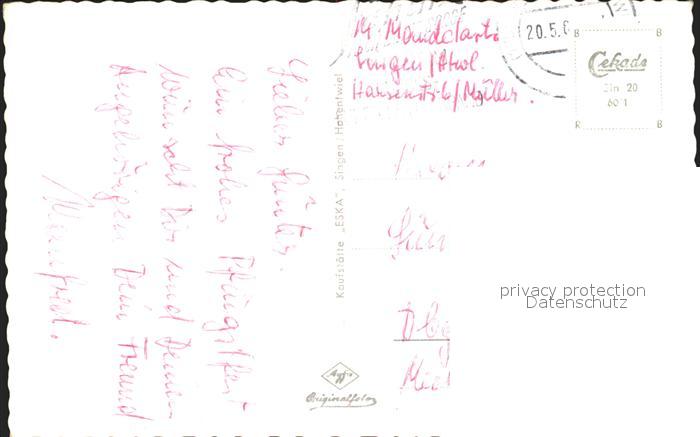 Lieber Günter.
Ein frohes Pfingstfest
wünscht Dir und Deinen
Angehörigen Dein Freund
Manfred.
Kaufstätte „ESKA", Singen/Hohentwiel
Agfa
Originalfoto
M.
Singen/Htwl.
/Müller.
20.5.6
B B
Cekade
Sin 20
60 1
R B
privacy protection
Datenschutz